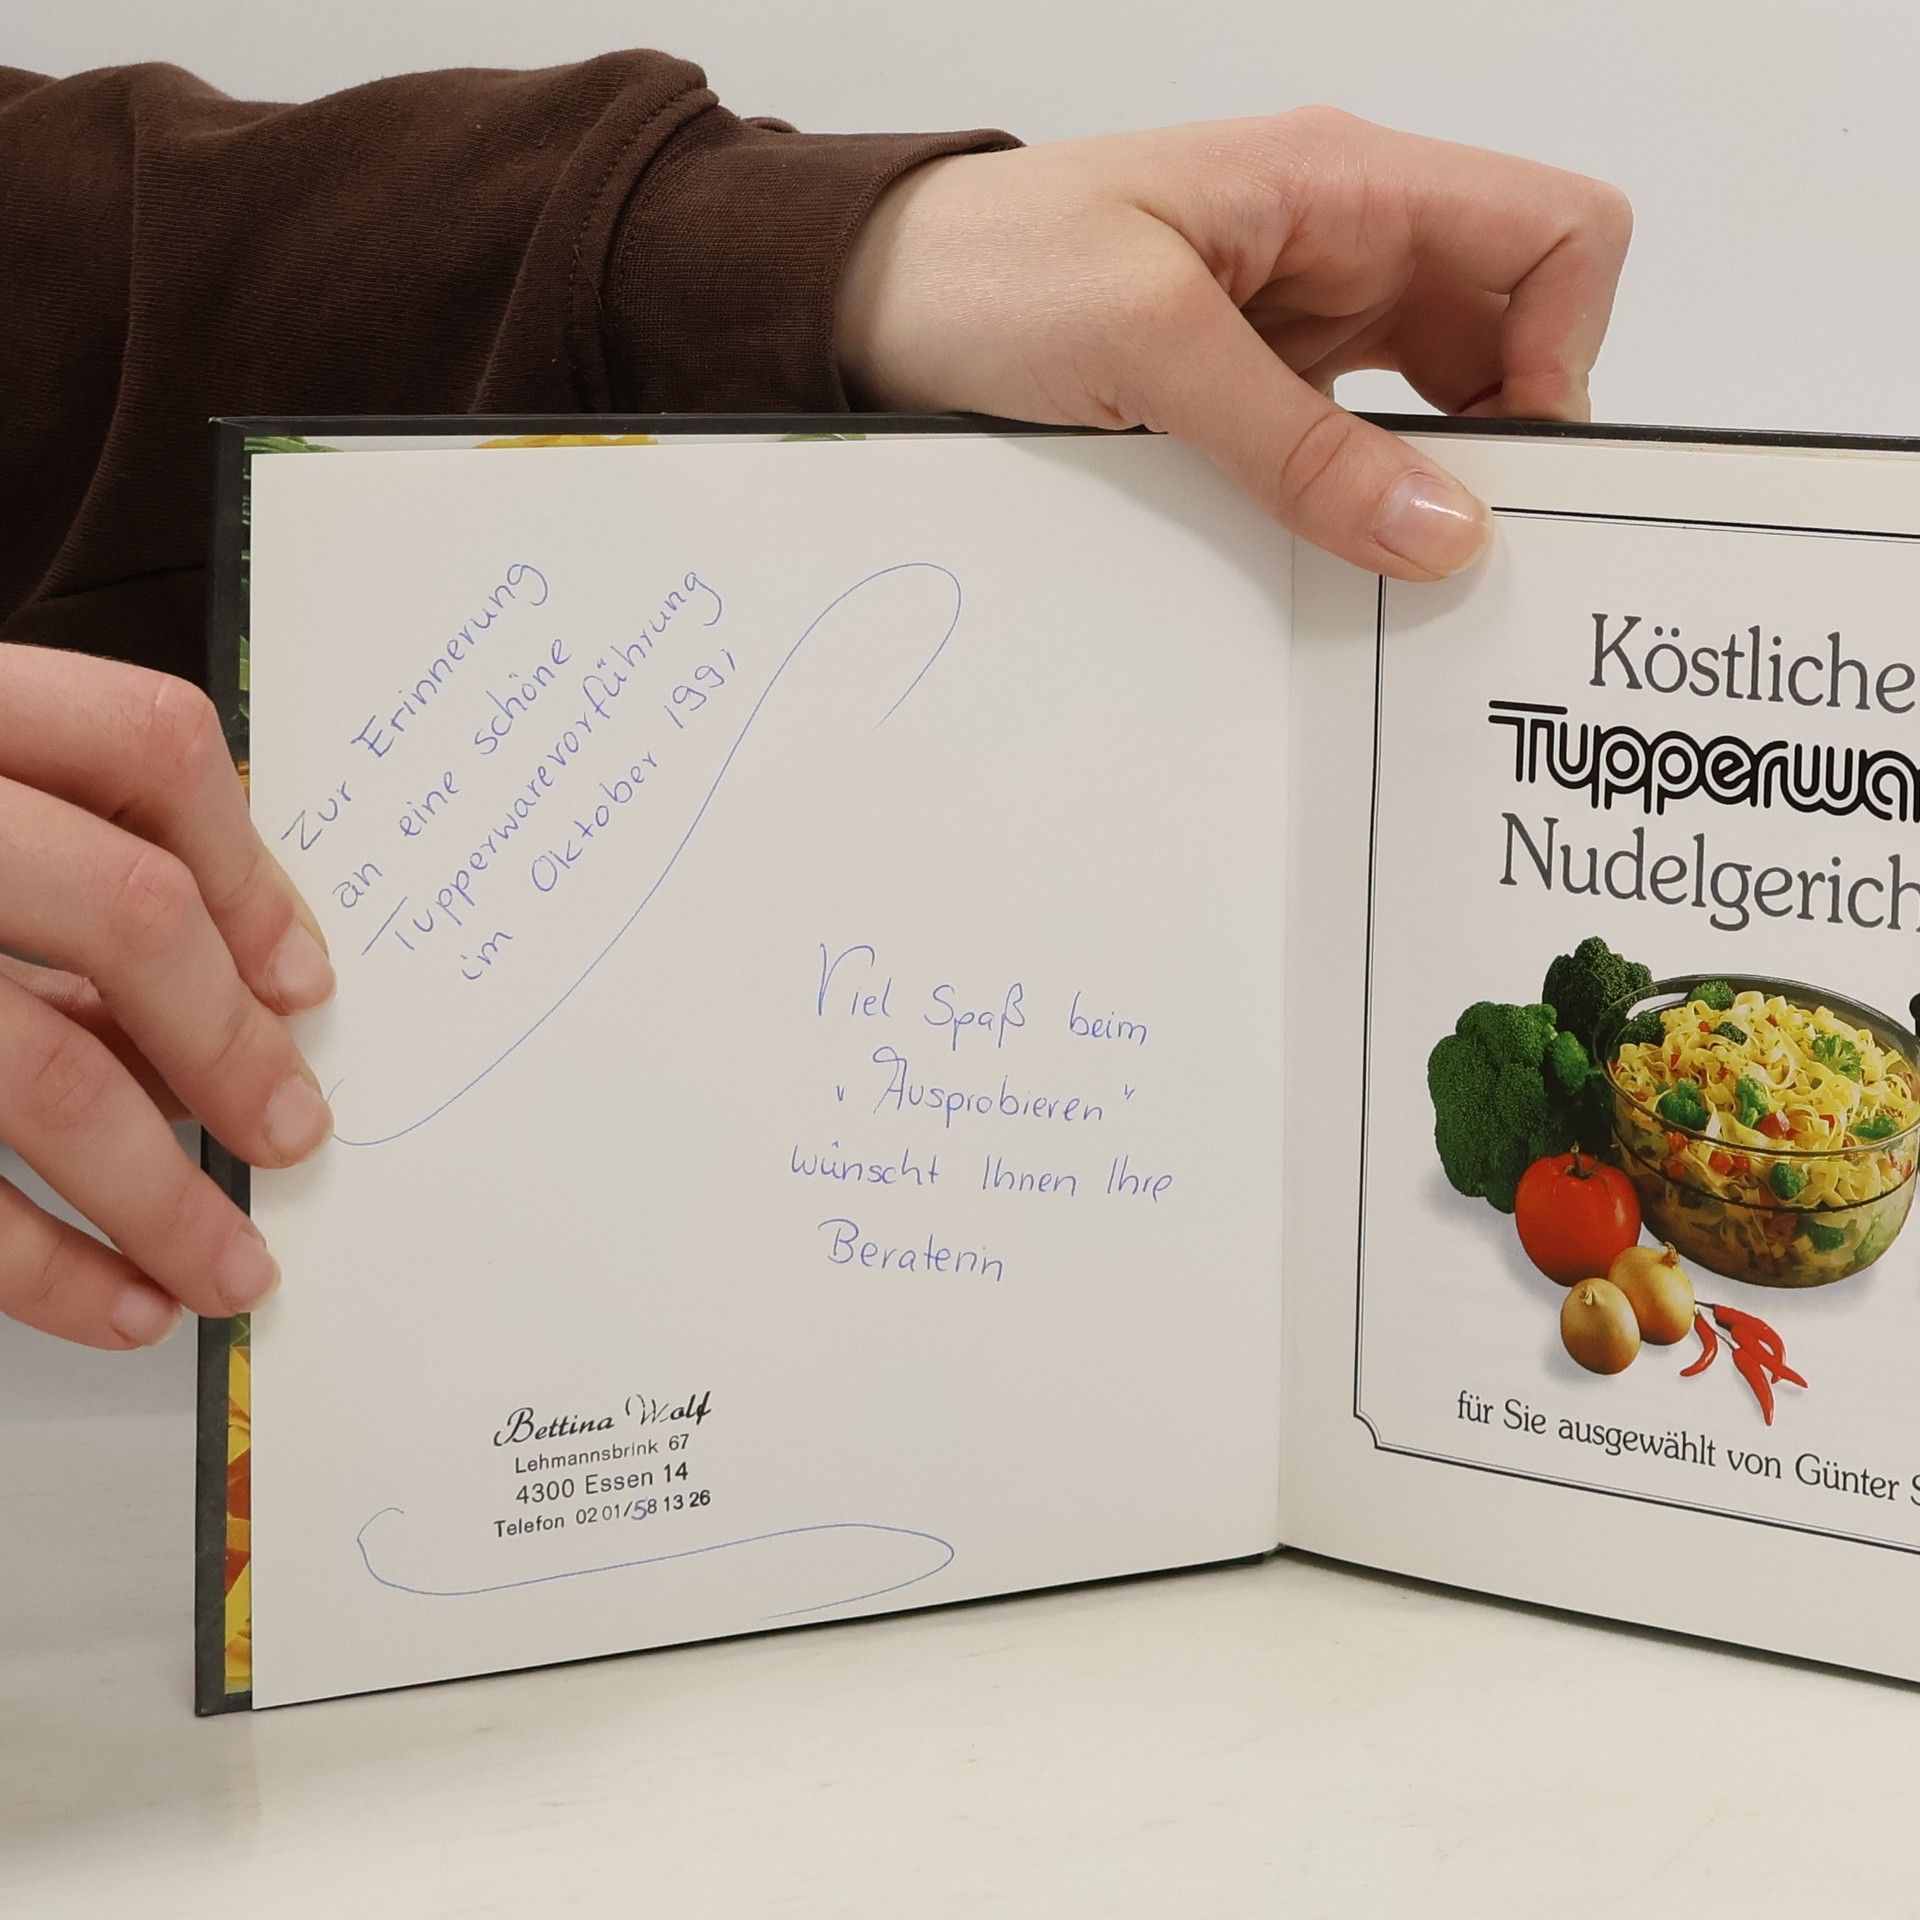 Zur Erinnerung
an eine schöne
Tupperwarevorführung
im Oktober 1991
Viel Spaß beim
"Ausprobieren"
wünscht Ihnen Ihre
Beraterin
Bettina Wolf
Lehmannsbrink 67
4300 Essen 14
Telefon 02 01/58 13 26
Köstliche
Tupperwa
Nudelgerich
für Sie ausgewählt von Günter S